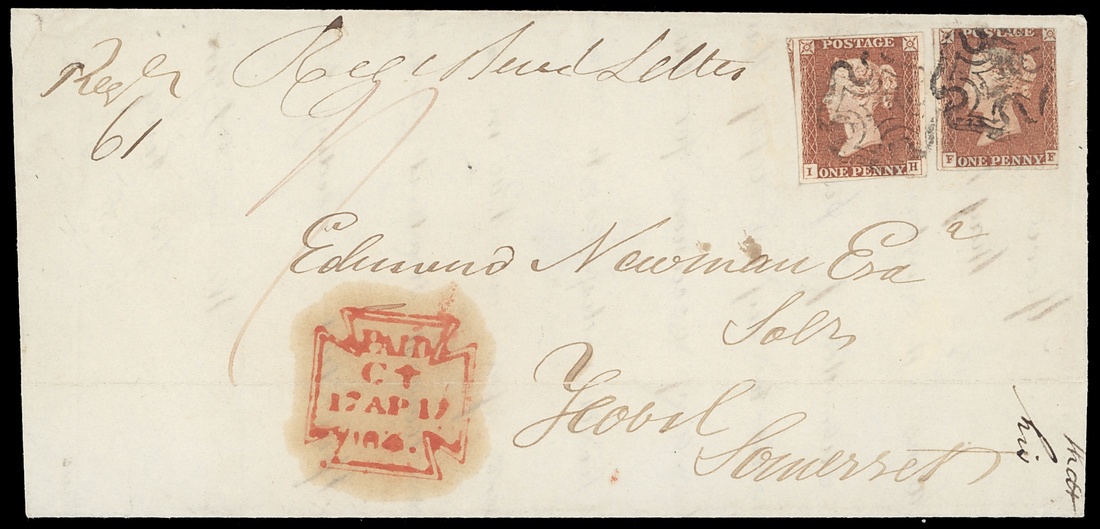 Registered Letter
Regr
61
POSTAGE
I ONE PENNY H
POSTAGE
F ONE PENNY F
Edmund Newman Esqr
Solr
Yeovil
Somerset
PAID
17 AP 17
his